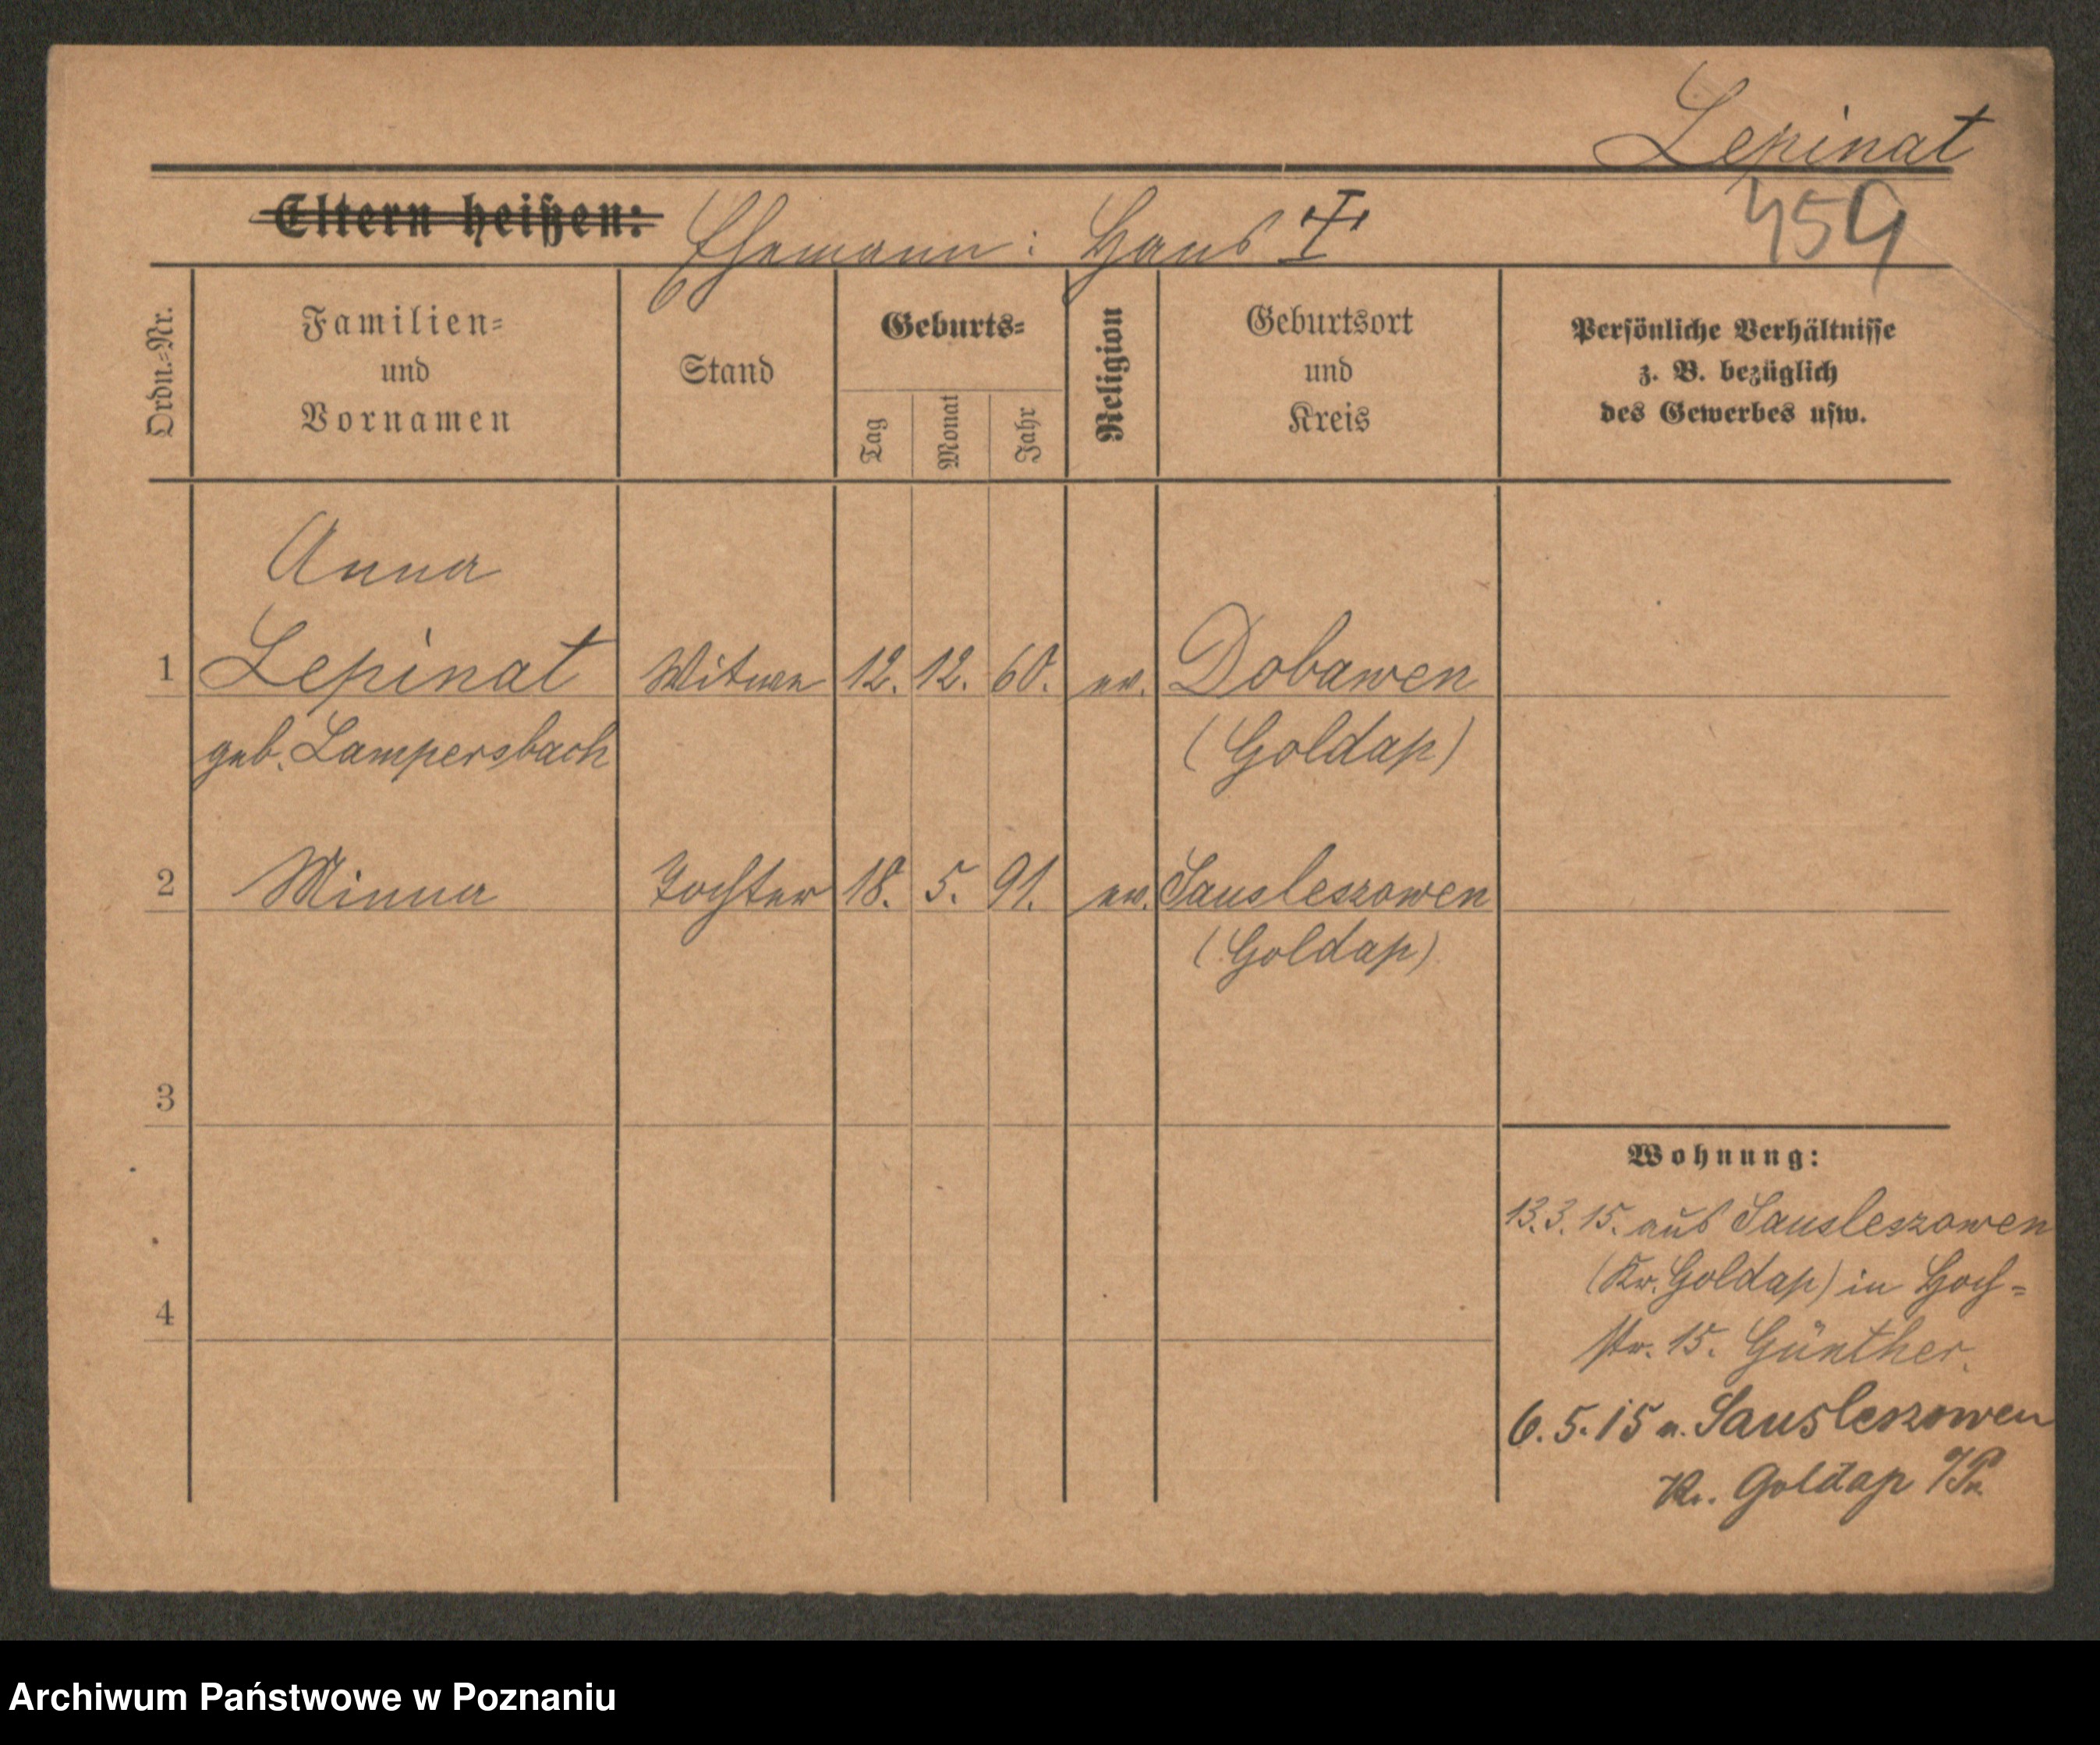 Lepinat
Eltern heißen: Ehemann: Hans ☨
459
Ordn.-Nr.
Familien-
und
Vornamen
Stand
Geburts-
Tag
Monat
Jahr
Religion
Geburtsort
und
Kreis
Persönliche Verhältnisse
z. B. bezüglich
des Gewerbes usw.
Anna
1 Lepinat Witwe 12. 12. 60. ev. Dobawen
geb. Lampersbach (Goldap)
2 Minna Tochter 18. 5. 91. ev. Sausleszowen
(Goldap)
3
Wohnung:
13.3.15. aus Sausleszowen
(Kr. Goldap) in Hoch-
4
str. 15. Günther.
6.5.15 n. Sausleszowen
Kr. Goldap
Archiwum Państwowe w Poznaniu